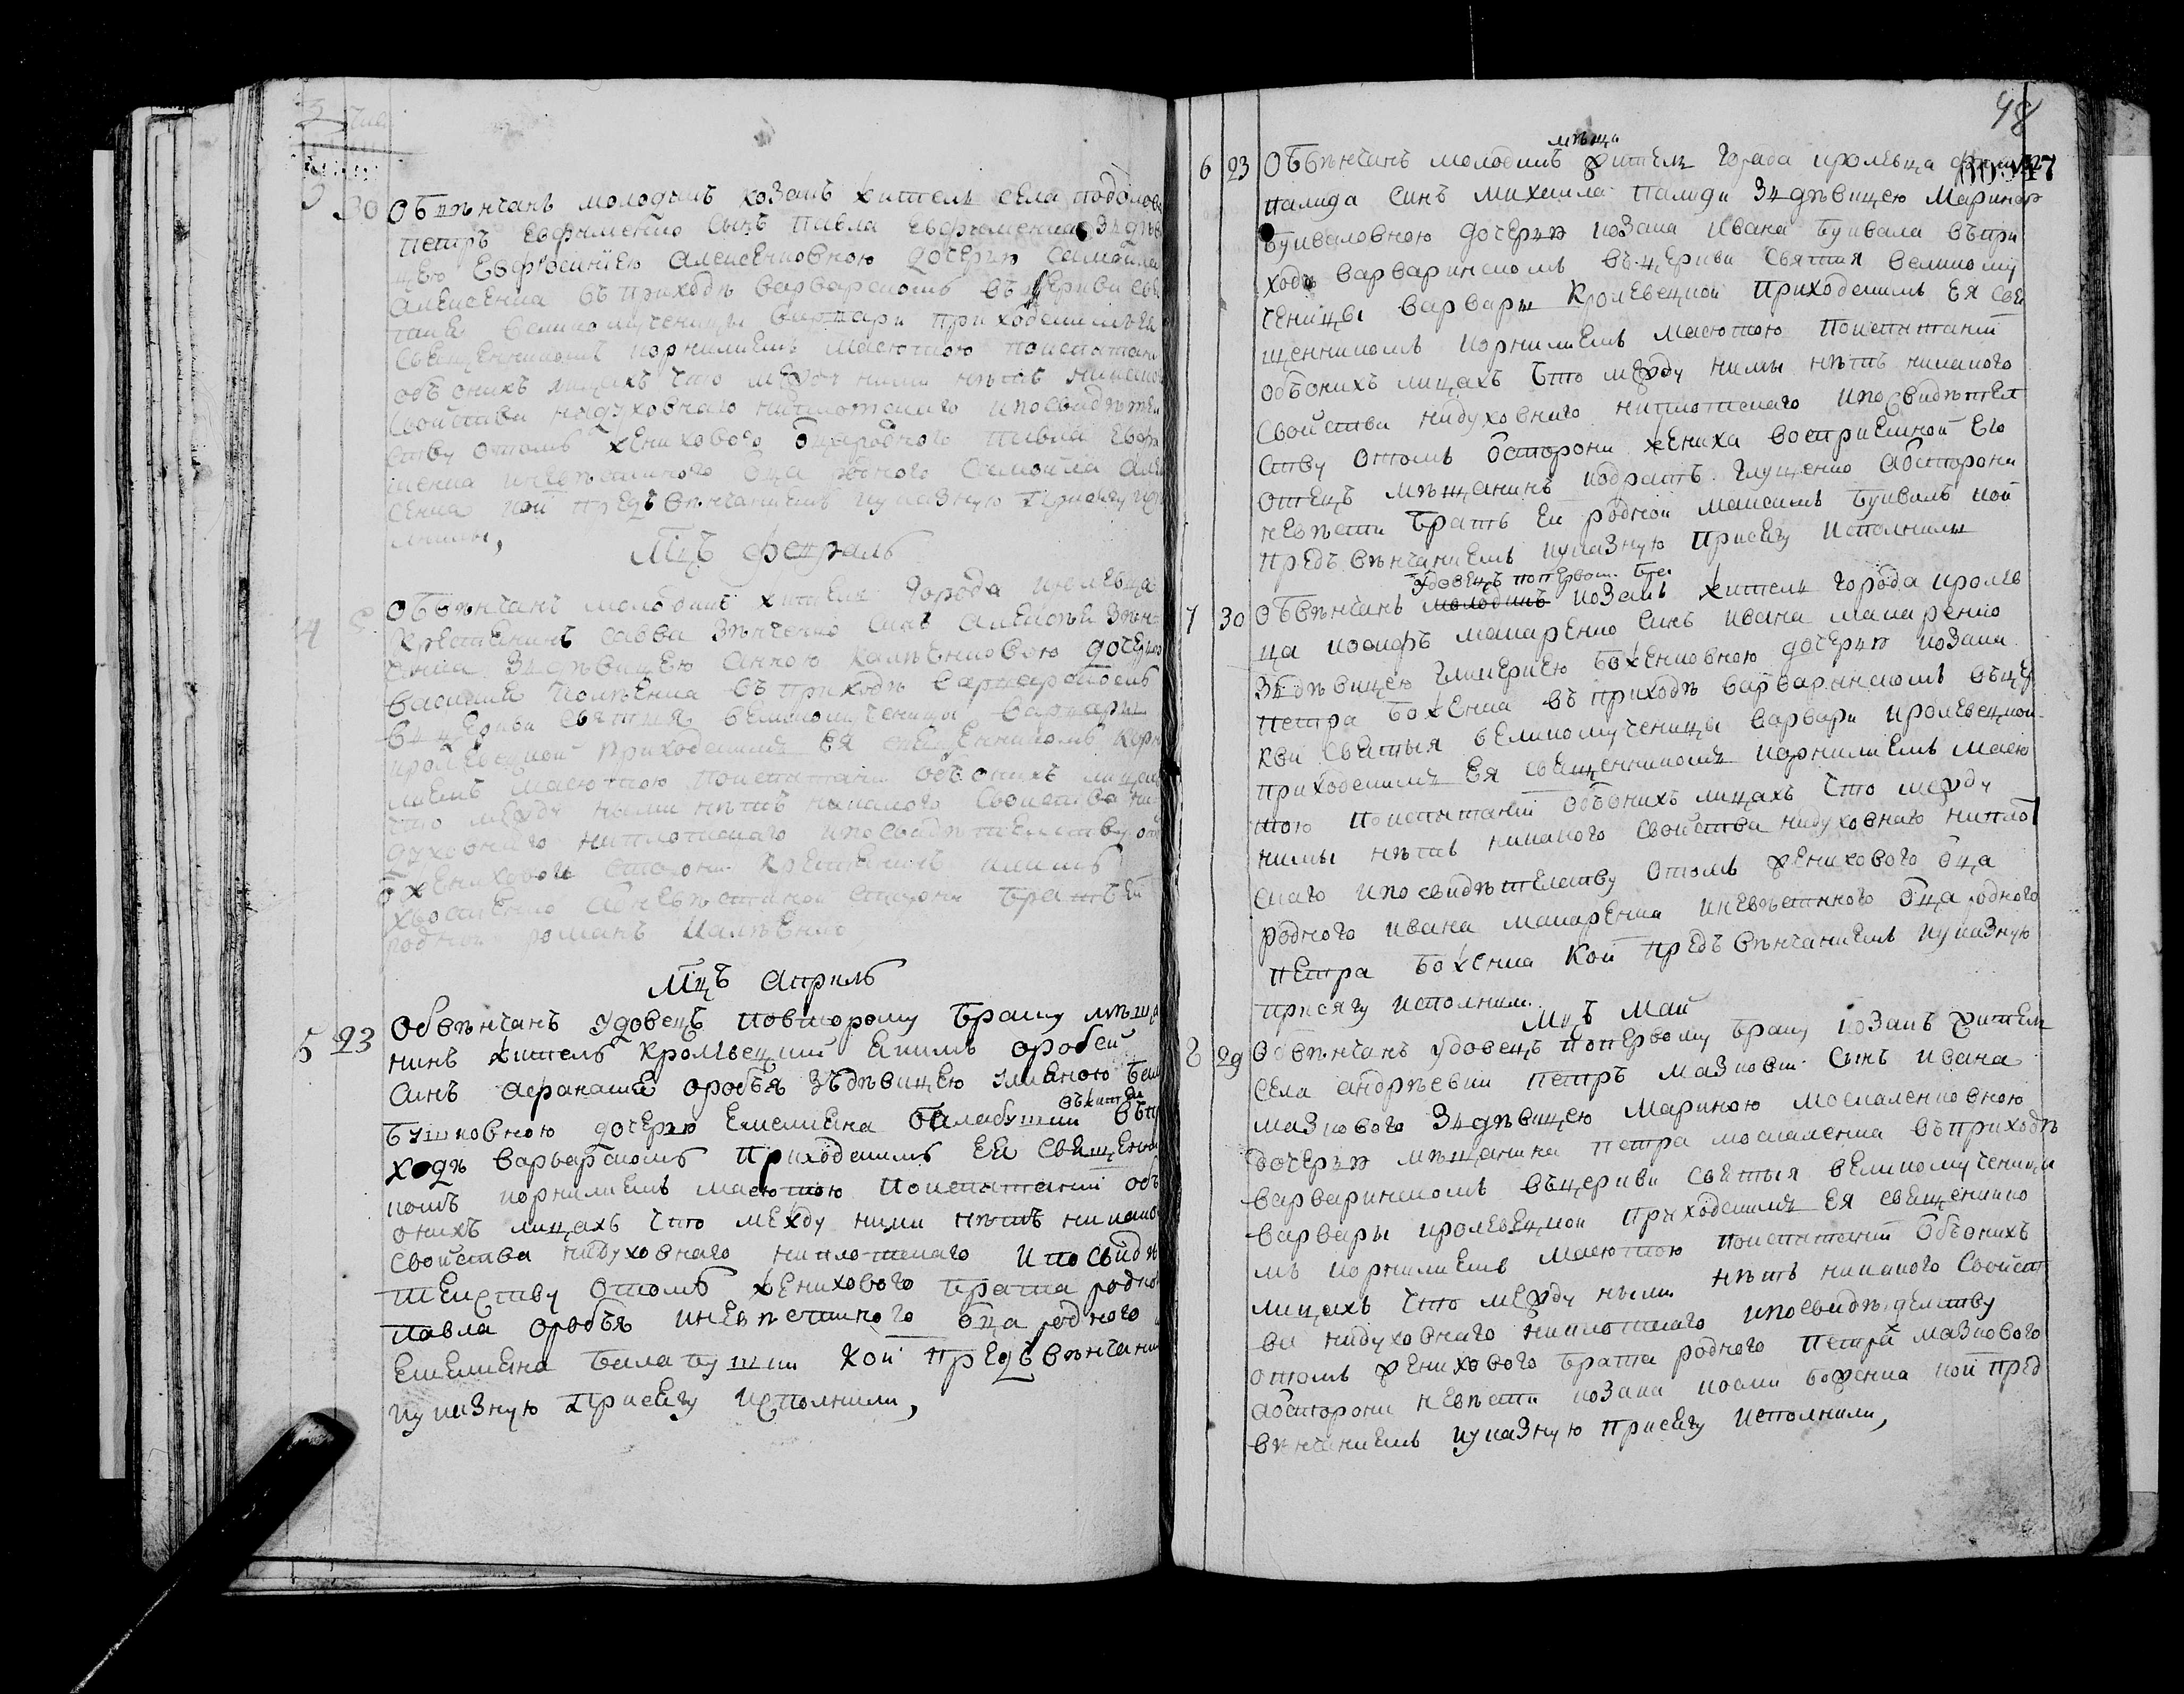 3 30 Обвѣнчанъ молодикъ козакъ житель села подолова
петръ Евфименко сынъ павла Евфименка зъ дѣви
цею Евфросиниею алексенковною дочерю самойла
алексенка въ приходѣ варварскомъ въ церкви свя
тия великомученицы варвари приходскимъ ея
священникомъ корнилиемъ маслютою поиспытани
объ онихъ лицахъ что между ними нѣтъ никакого
свойства ни духовнаго ни плотскаго и по свидѣтел
ству о томъ женихового отца родного павла Евфи
менка и невѣстиного отца родного самойла алек
сенка кои предъ вѣнчаниемъ и указную присягу испо
лнили,
Мцъ февраль
4 Обвѣнчанъ молодикъ житель города кролевца
крестянинъ савва зѣнченко синъ алексѣя зѣн
ченка зъ дѣвицею анною калѣнковою дочерю
василия калѣнка въ приходѣ варварскомъ
въ церкви святия великомученицы варвари
кролевецкой приходскимъ ея священникомъ корни
лиемъ маслютою поиспитании объ онихъ лицахъ
что между ними нѣтъ никакого свойства ни
духовнаго ни плотскаго и по свидѣтелству от
жениховой стороны крестянинъ климъ
хвостенко а отъ невѣстиной стороны братъ ей
родной романъ калѣенко
Мцъ Априль
5 23 Обвѣнчанъ удовецъ по второму браку мѣща
нинъ житель кролевецкий екимъ оробей
синъ афанасия оробья зъ дѣвицею улияною бела
бушковною дочерю емелияна балабушки въ при
ходѣ варварскомъ приходскимъ ея священни
комъ корнилиемъ маслютою поиспытании объ
онихъ лицахъ что между ними нѣтъ никакого
свойства ни духовнаго ни плотскаго и по свидѣ
телству о томъ женихового брата родного
павла оробья и невѣстиного отца родного
емелияна балабушки кои предъ вѣнчание
и указную присягу исполнили,
48
мѣща
6 23 Обвѣнчанъ молодикъ житель города кролевца
палида синъ михаила палиди зъ дѣвицею Мариною
буйваловною дочерю козака ивана буйвала въ при
ходѣ варваринскомъ въ церкви святия великому
ченицы варвары Кролевецкой приходскимъ ея свя
щенникомъ корнилиемъ маслютою поиспытании
объ онихъ лицахъ что между нимы нѣтъ никакого
свойства ни духовнаго ни плотскаго и по свидѣтел
ству о томъ от стороны жениха восприемной его
отецъ мѣщанинъ кодратъ глущенко а от стороны
невѣсти братъ еи родной максимъ буйвалъ кои
предъ вѣнчаниемъ и указную присягу исполнили
удовецъ по первом бра
7 30 Обвѣнчанъ молодикъ козакъ житель города кролев
ца иосифъ макаренко синъ ивана макаренко
зъ дѣвицею гликериею боженковною дочерю козака
петра боженка въ приходѣ варваринскомъ въ цер
кви святыя великомученицы варвари кролевецкой
приходскимъ ея священникомъ корнилиемъ маслю
тою поиспытании объ онихъ лицахъ что между
нимы нѣтъ никакого свойства ни духовнаго ни плот
скаго и по свидѣтелству о томъ женихового отца
родного ивана макаренка и невѣстинного отца родного
петра боженка кои предъ вѣнчаниемъ и указную
присягу исполнили.
Мцъ Май
8 29 Обвѣнчанъ удовецъ по первому браку козакъ житель
села андрѣевки петръ мазковий сынъ ивана
мазкового зъ дѣвицею мариною москаленковною
дочерю мѣщанина петра москаленка въ приходѣ
варваринскомъ въ церкви святыя великомученици
варвары кролевецкой приходскимъ ея священнико
мъ корнилиемъ маслютою поиспытании объ онихъ
лицахъ что между ними нѣтъ никакого свойст
ва ни духовнаго ни плотскаго и по свидѣтелству
о томъ женихового брата родного петра мазкового
а от стороны невѣсти козака иосипа боженка кои пред
вѣнчаниемъ и указную присягу исполнили,